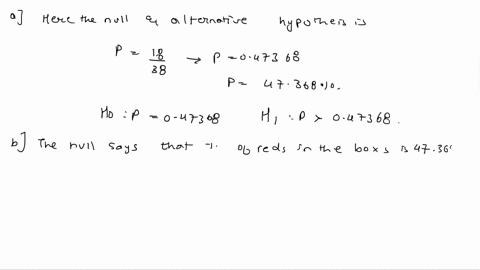 a] Here the null & alternative hypotheis is
P = 18/38 → P = 0.47368
P = 47.368%.
H0 : P = 0.47368 H1 : P > 0.47368.
b] The null says that % of reds in the boxs is 47.36